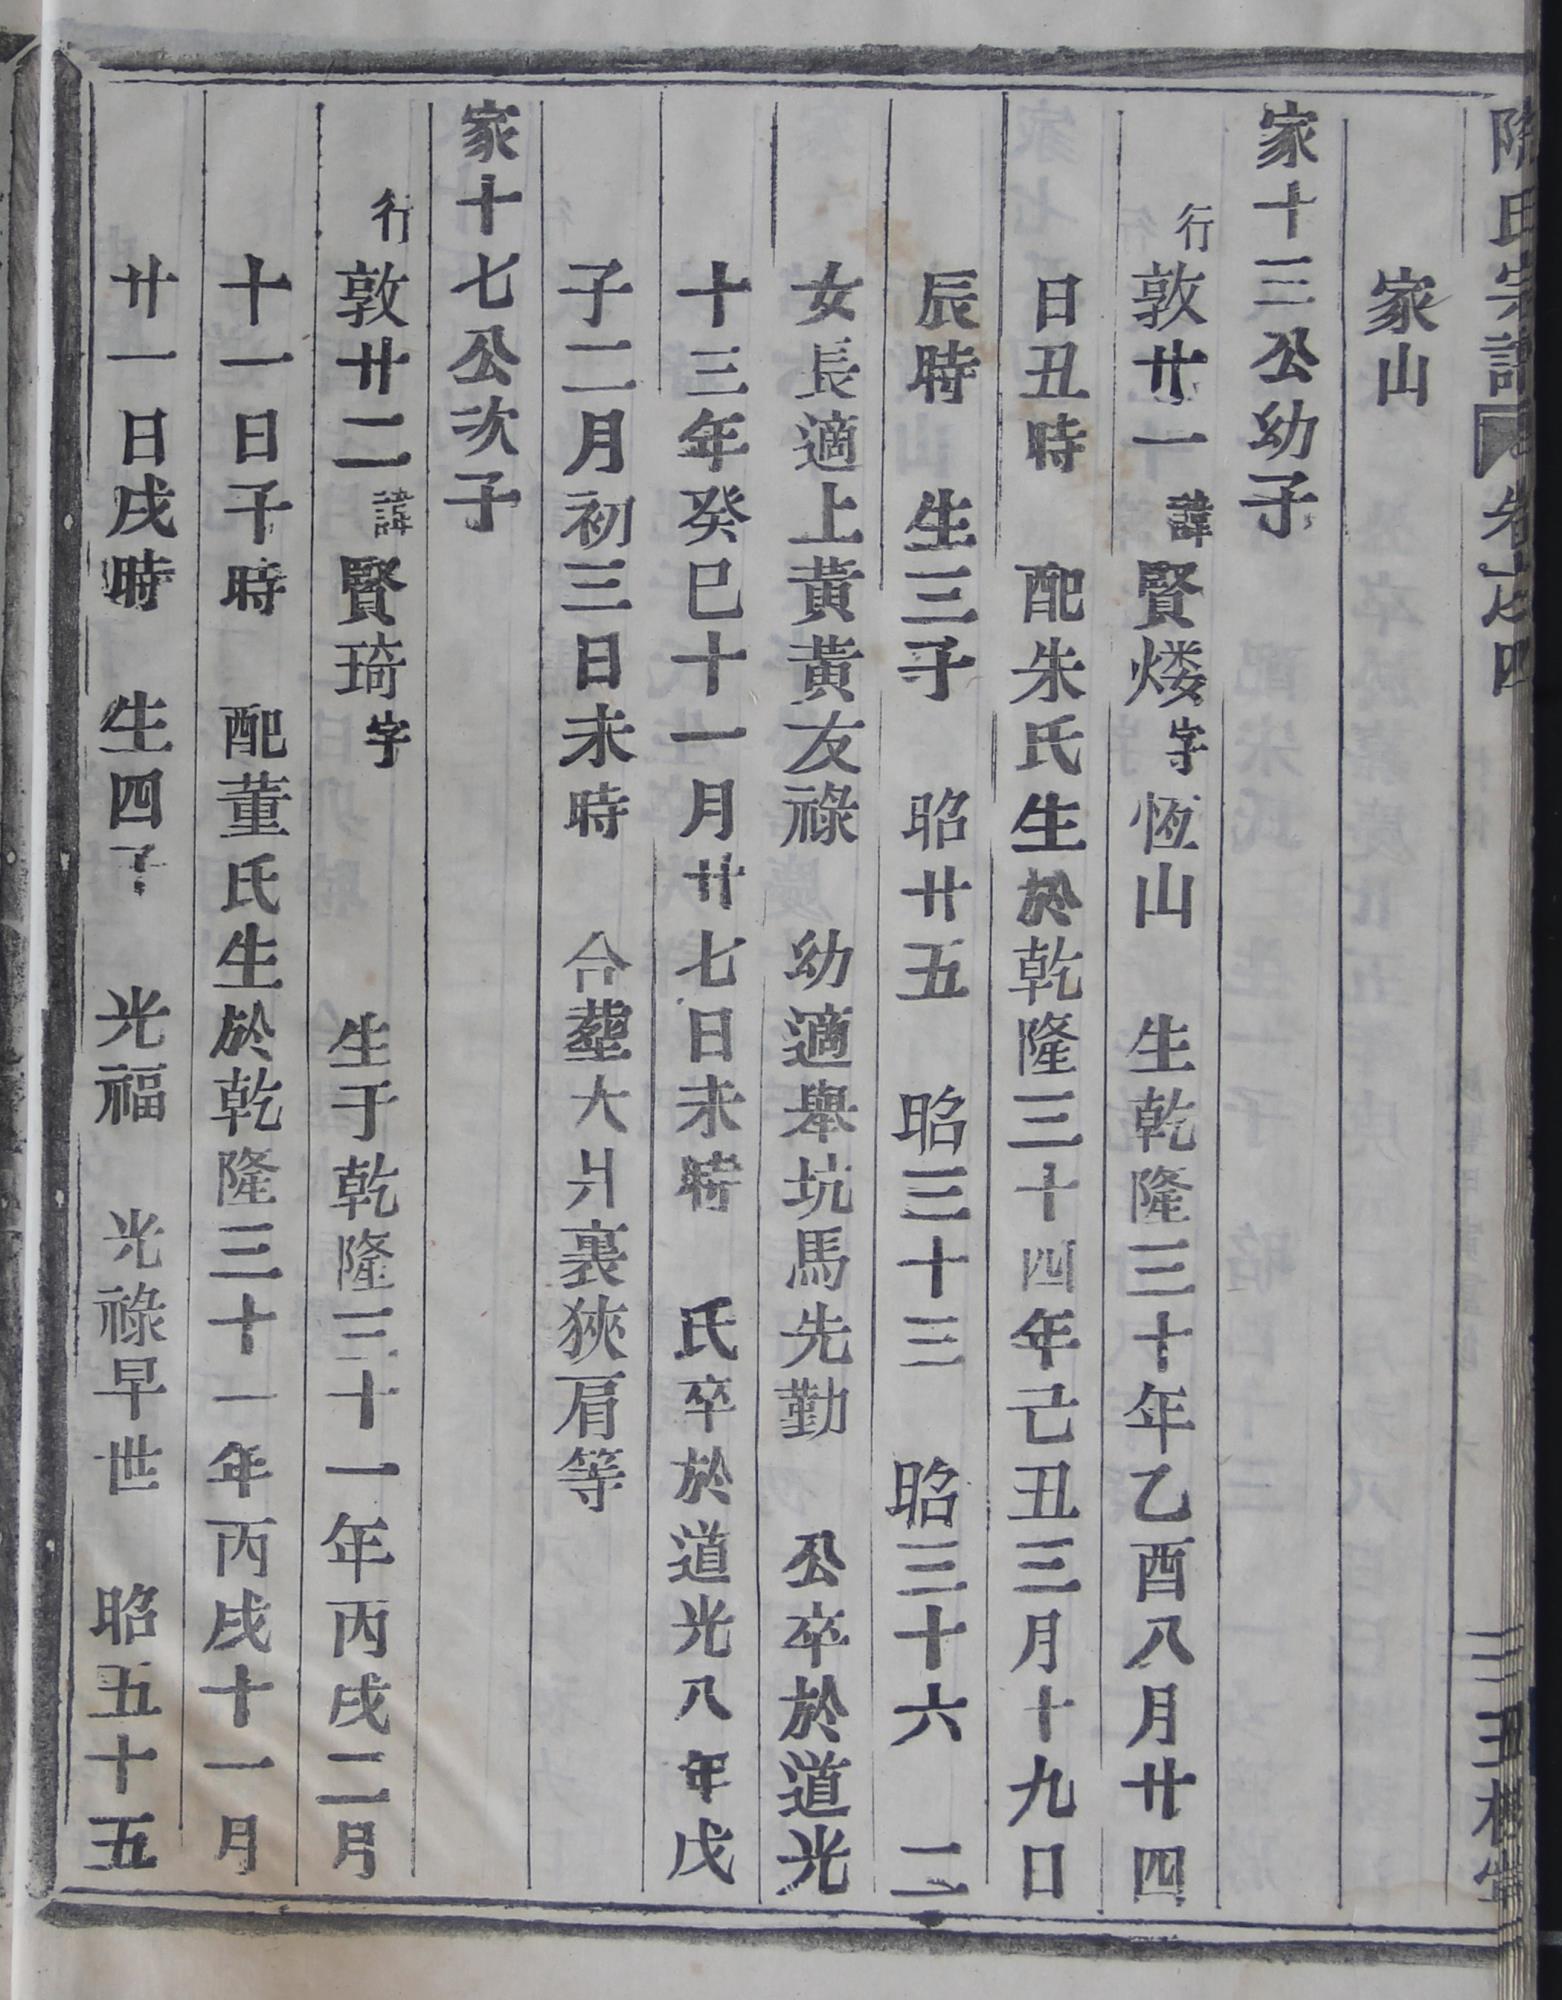 氏宗譜 卷之四
家山
家十三公幼子
行敦廿一諱賢煖字恆山 生乾隆三十年乙酉八月廿四
日丑時 配朱氏生於乾隆三十四年己丑三月十九日
辰時 生三子 昭廿五 昭三十三 昭三十六 二
女長適上黃黃友祿 幼適舉坑馬先勤 公卒於道光
十三年癸巳十一月廿七日未時 氏卒於道光八年戊
子二月初三日未時 合塟大爿裏狹肩等
家十七公次子
行敦廿二諱賢琦字 生于乾隆三十一年丙戌二月
十一日子時 配董氏生於乾隆三十一年丙戌十一月
廿一日戌時 生四子 光福 光祿早世 昭五十五